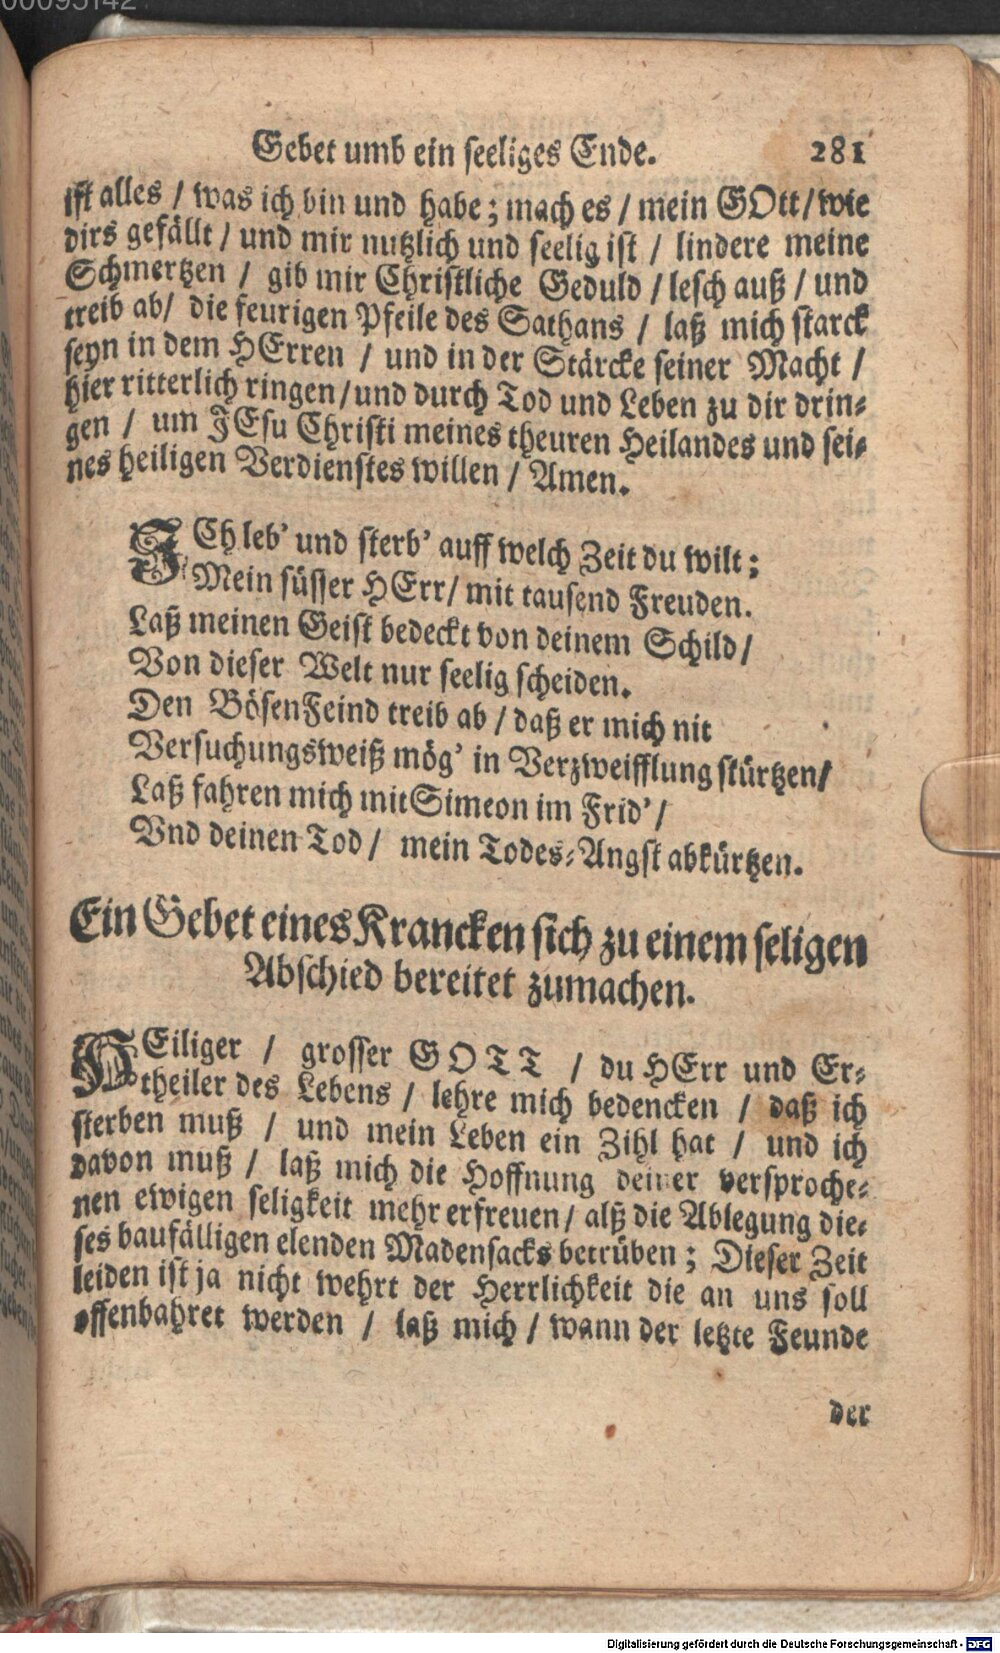 Gebet umb ein seeliges Ende. 281
ist alles / was ich bin und habe; mach es / mein GOtt / wie
dirs gefällt / und mir nutzlich und seelig ist / lindere meine
Schmertzen / gib mir Christliche Geduld / lesch auß / und
treib ab / die feurigen Pfeile des Sathans / laß mich starck
seyn in dem HErren / und in der Stärcke seiner Macht /
hier ritterlich ringen / und durch Tod und Leben zu dir drin-
gen / um JEsu Christi meines theuren Heilandes und sei-
nes heiligen Verdienstes willen / Amen.
JCh leb' und sterb' auff welch Zeit du wilt;
Mein süsser HErr / mit tausend Freuden.
Laß meinen Geist bedeckt von deinem Schild /
Von dieser Welt nur seelig scheiden.
Den Bösen Feind treib ab / daß er mich nit
Versuchungsweiß mög' in Verzweifflung stürtzen /
Laß fahren mich mit Simeon im Frid' /
Vnd deinen Tod / mein Todes-Angst abkürtzen.
Ein Gebet eines Krancken sich zu einem seligen
Abschied bereitet zumachen.
HEiliger / grosser GOTT / du HErr und Er-
theiler des Lebens / lehre mich bedencken / daß ich
sterben muß / und mein Leben ein Zihl hat / und ich
davon muß / laß mich die Hoffnung deiner versproche-
nen ewigen seligkeit mehr erfreuen / alß die Ablegung die-
ses baufälligen elenden Madensacks betrüben; Dieser Zeit
leiden ist ja nicht wehrt der Herrlichkeit die an uns soll
offenbahret werden / laß mich / wann der letzte Feunde
der
Digitalisierung gefördert durch die Deutsche Forschungsgemeinschaft - DFG